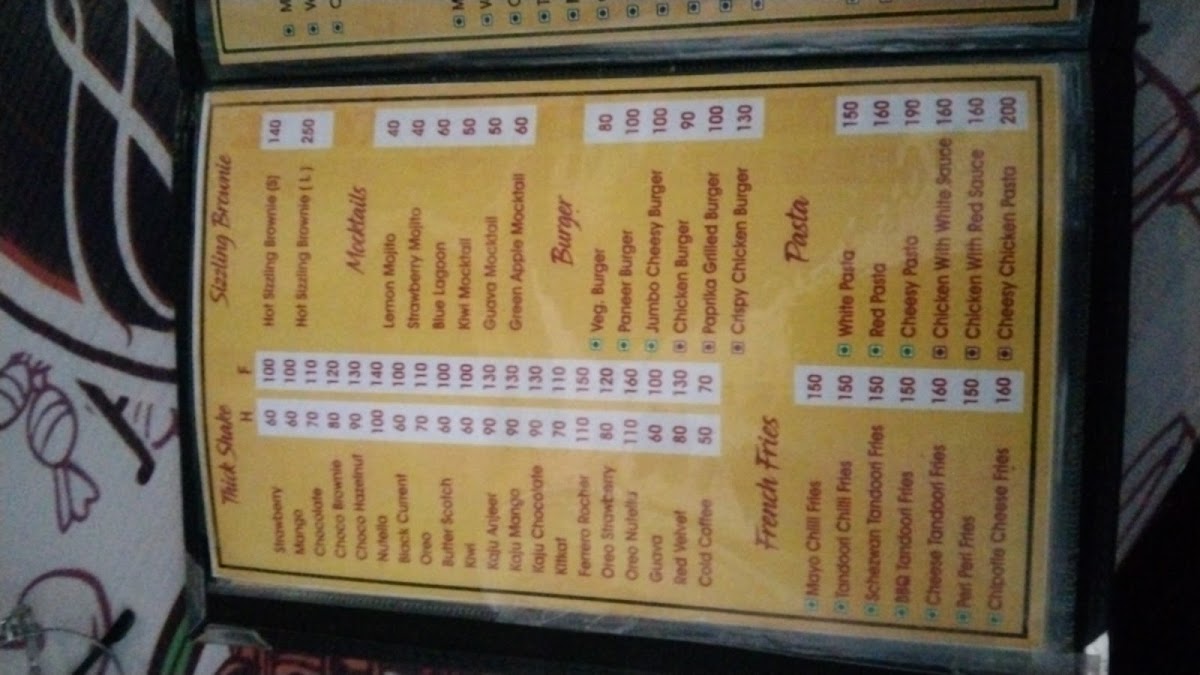 Thick Shake
H F
Strawberry 60 100
Mango 60 100
Chocolate 70 110
Choco Brownie 80 120
Choco Hazelnut 90 130
Nutella 100 140
Black Current 60 100
Oreo 70 110
Butter Scotch 60 100
Kiwi 60 100
Kaju Anjeer 90 130
Kaju Mango 90 130
Kaju Chocolate 90 130
Kitkat 70 110
Ferrero Rocher 110 150
Oreo Strawberry 80 120
Oreo Nutella 110 160
Guava 60 100
Red Velvet 80 130
Cold Coffee 50 70
French Fries
Mayo Chilli Fries 150
Tandoori Chilli Fries 150
Schezwan Tandoori Fries 150
BBQ Tandoori Fries 150
Cheese Tandoori Fries 160
Peri Peri Fries 150
Chipotle Cheese Fries 160
Sizzling Brownie
Hot Sizzling Brownie (S) 140
Hot Sizzling Brownie ( L ) 250
Mocktails
Lemon Mojito 40
Strawberry Mojito 40
Blue Lagoon 60
Kiwi Mocktail 50
Guava Mocktail 50
Green Apple Mocktail 60
Burger
Veg. Burger 80
Paneer Burger 100
Jumbo Cheesy Burger 100
Chicken Burger 90
Paprika Grilled Burger 100
Crispy Chicken Burger 130
Pasta
White Pasta 150
Red Pasta 160
Cheesy Pasta 190
Chicken With White Sauce 160
Chicken With Red Sauce 160
Cheesy Chicken Pasta 200